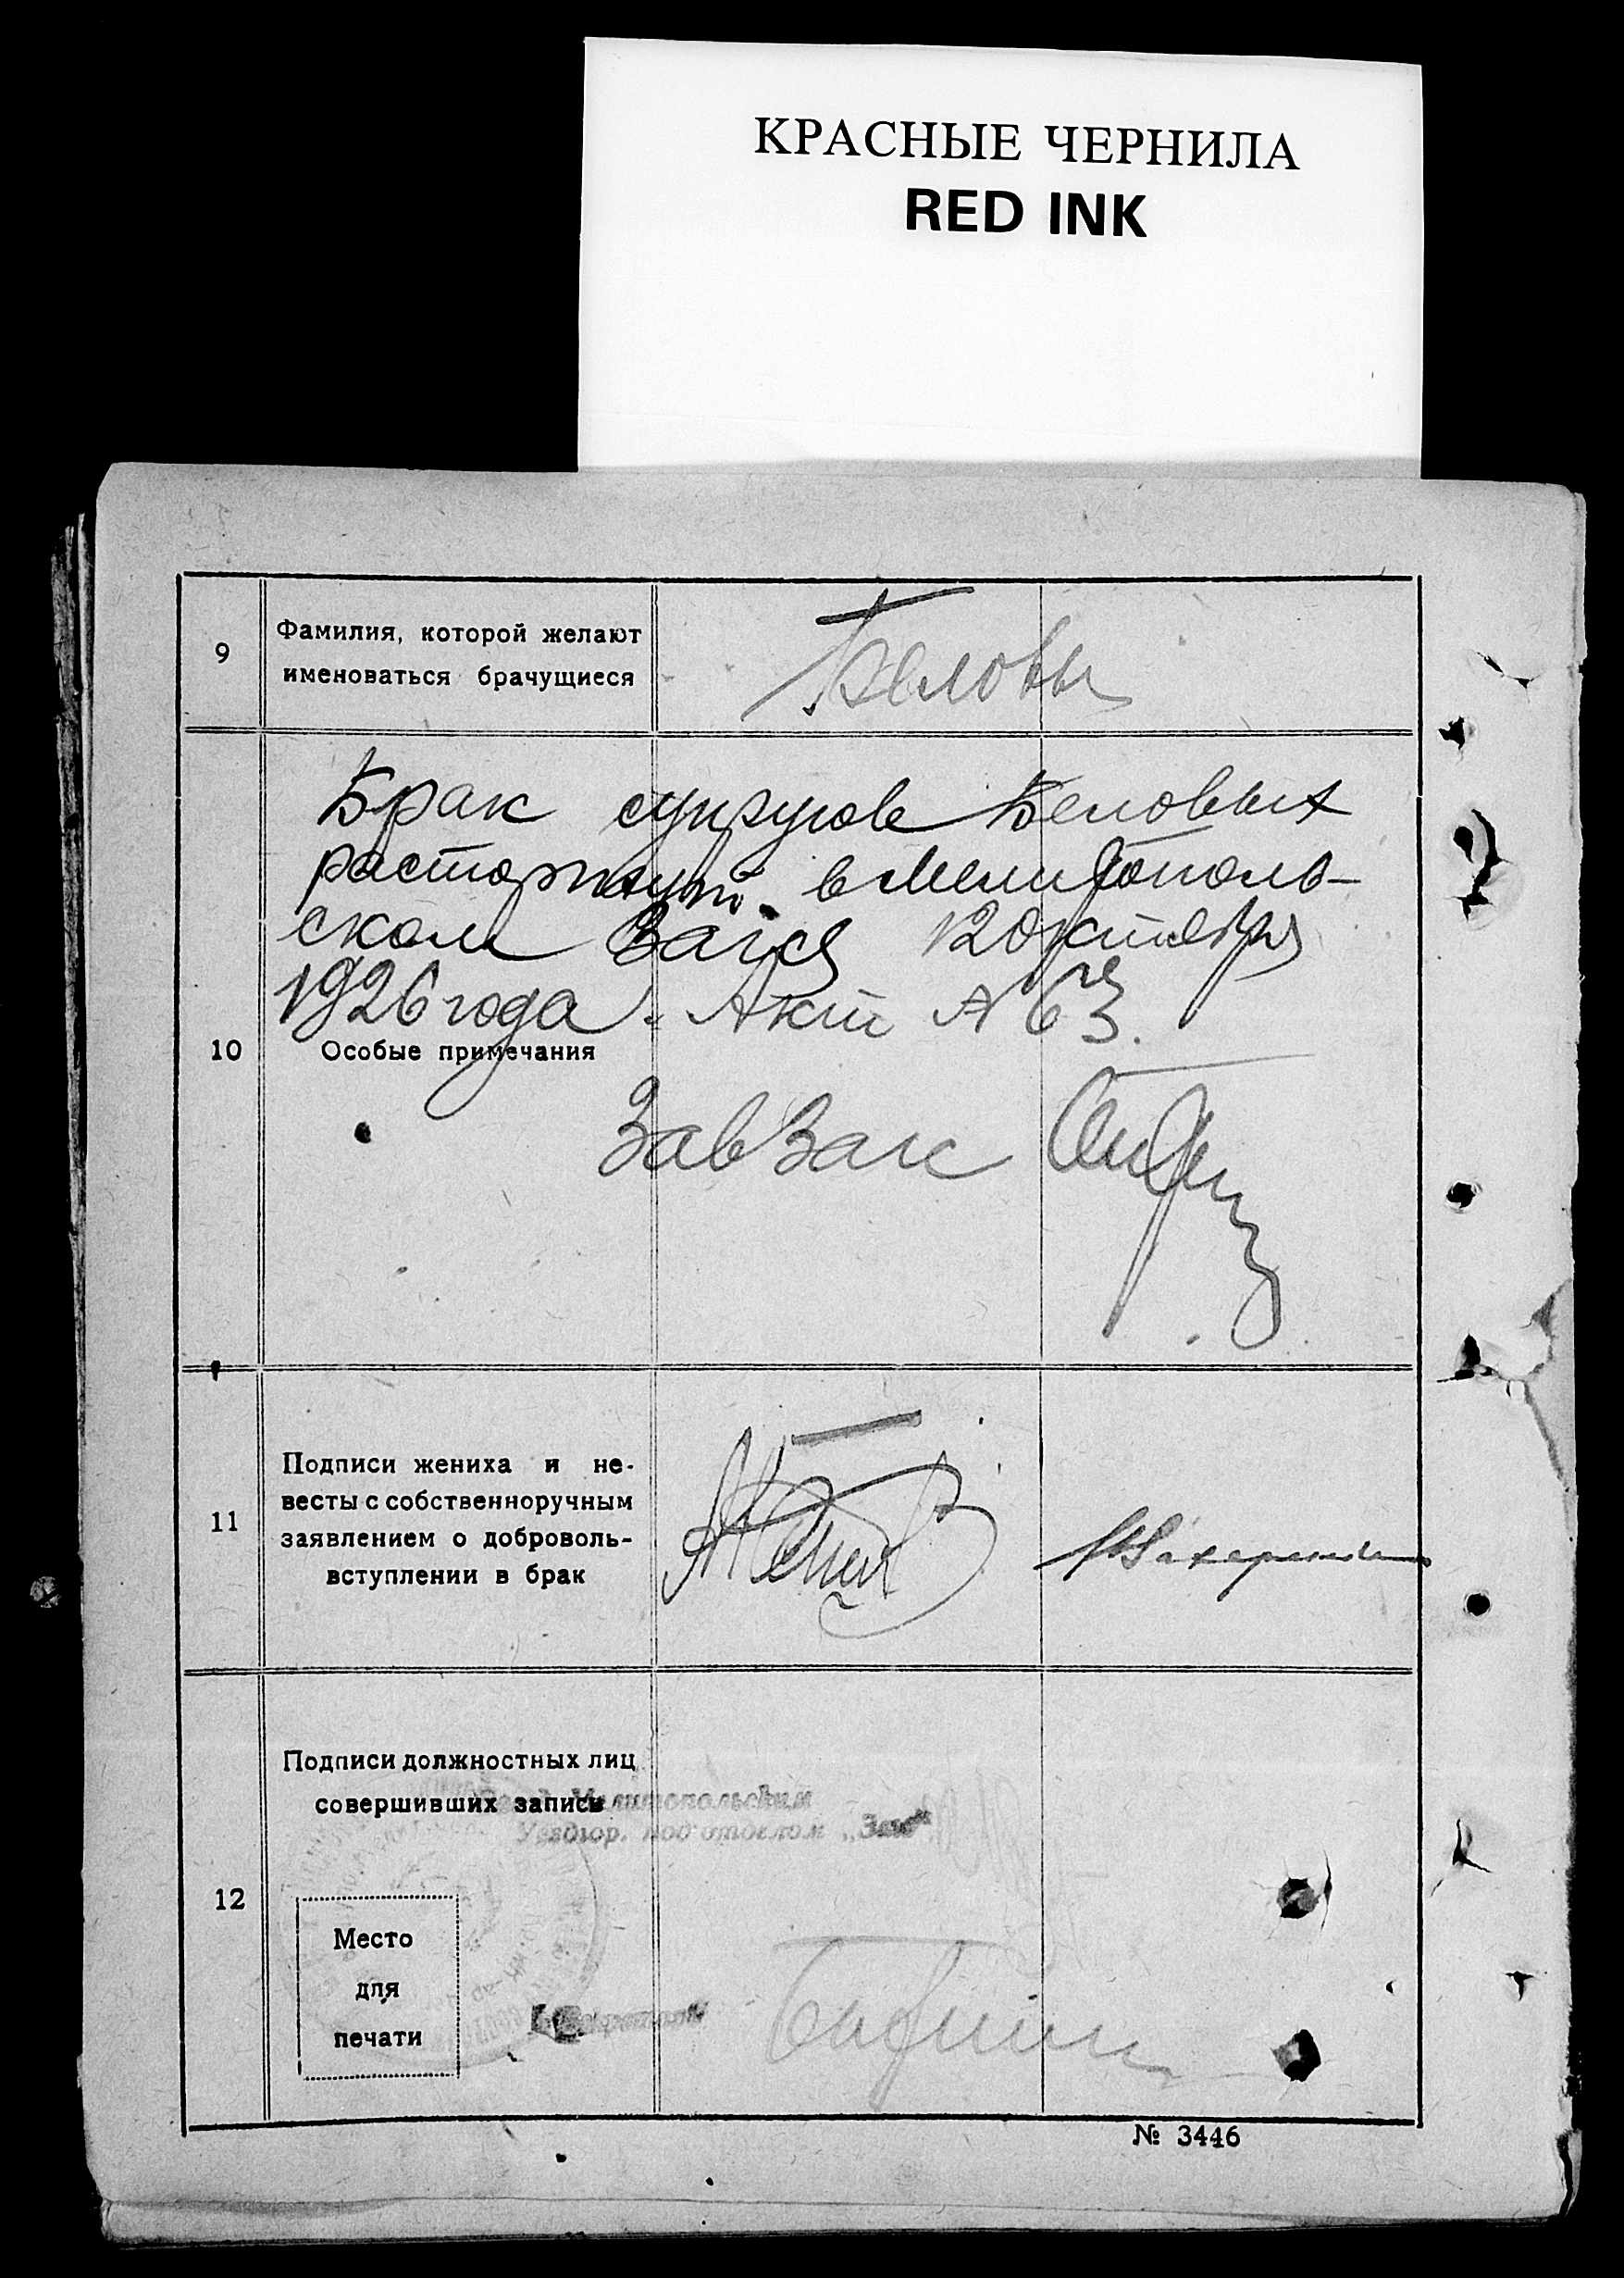 КРАСНЫЕ ЧЕРНИЛА
RED INK
9
Фамилия, которой желают
именоваться брачущиеся
Беловы
Брак супругов Беловых
расторгнут в Мелитополь-
ском Загсе 12 октября
1926 года. Акт № 63.
10
Особые примечания
Зав Загс
11
Подписи жениха и не-
весты с собственноручным
заявлением о доброволь-
вступлении в брак
12
Подписи должностных лиц
совершивших запись
Мелитопольским
Уездгор. подотделом „Загс“
Место
для
печати
№ 3446